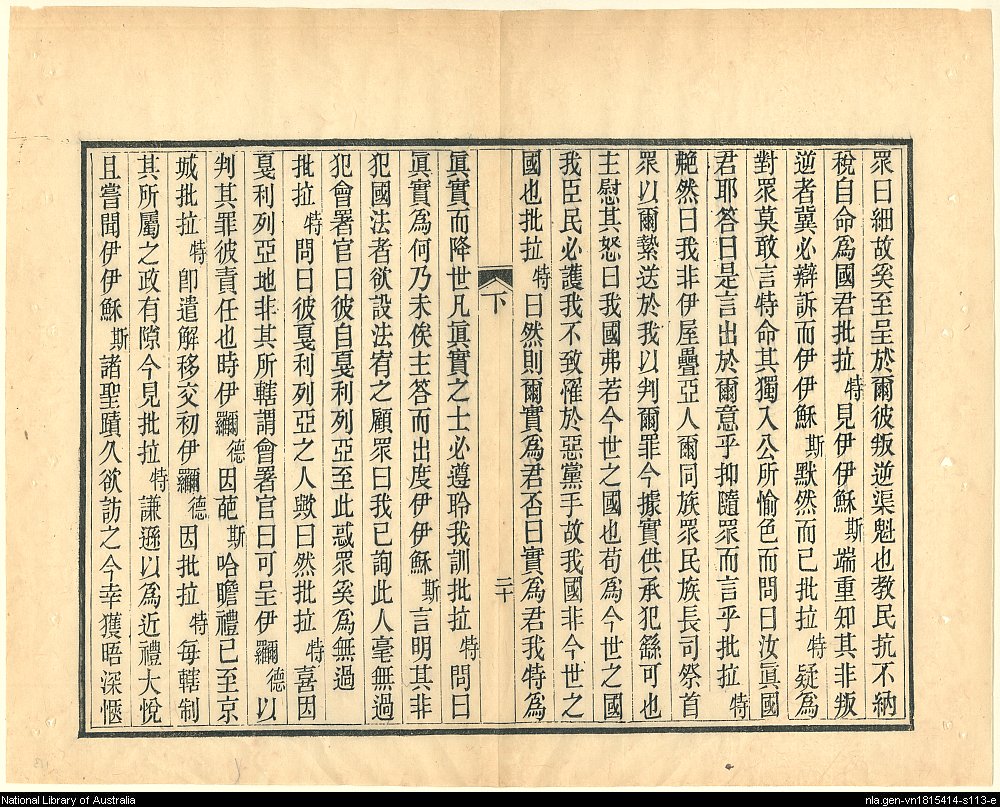 眾曰細故奚至呈於爾彼叛逆渠魁也教民抗不納
稅自命為國君批拉特見伊伊穌斯端重知其非叛
逆者冀必辯訴而伊伊穌斯默然而已批拉特疑為
對眾莫敢言特命其獨入公所愉色而問曰汝眞國
君耶答曰是言出於爾意乎抑隨眾而言乎批拉特
艴然曰我非伊屋疊亞人爾同族眾民族長司祭首
眾以爾縶送於我以判爾罪今據實供承犯繇可也
主慰其怒曰我國弗若今世之國也苟為今世之國
我臣民必護我不致罹於惡黨手故我國非今世之
國也批拉特曰然則爾實為君否曰實為君我特為
下
二十
眞實而降世凡眞實之士必遵聆我訓批拉特問曰
眞實為何乃未俟主答而出度伊伊穌斯言明其非
犯國法者欲設法宥之顧眾曰我已詢此人毫無過
犯會署官曰彼自戛利列亞至此惑眾奚為無過
批拉特問曰彼戛利列亞之人歟曰然批拉特喜因
戛利列亞地非其所轄謂會署官曰可呈伊羅德以
判其罪彼責任也時伊德因葩斯哈瞻禮已至京
城批拉特卽遣解移交初伊德因批拉特每轄制
其所屬之政有隙今見批拉特謙遜以為近禮大悅
且嘗聞伊伊穌斯諸聖蹟久欲訪之今幸獲晤深愜
National Library of Australia
nla.gen-vn1815414-s113-e